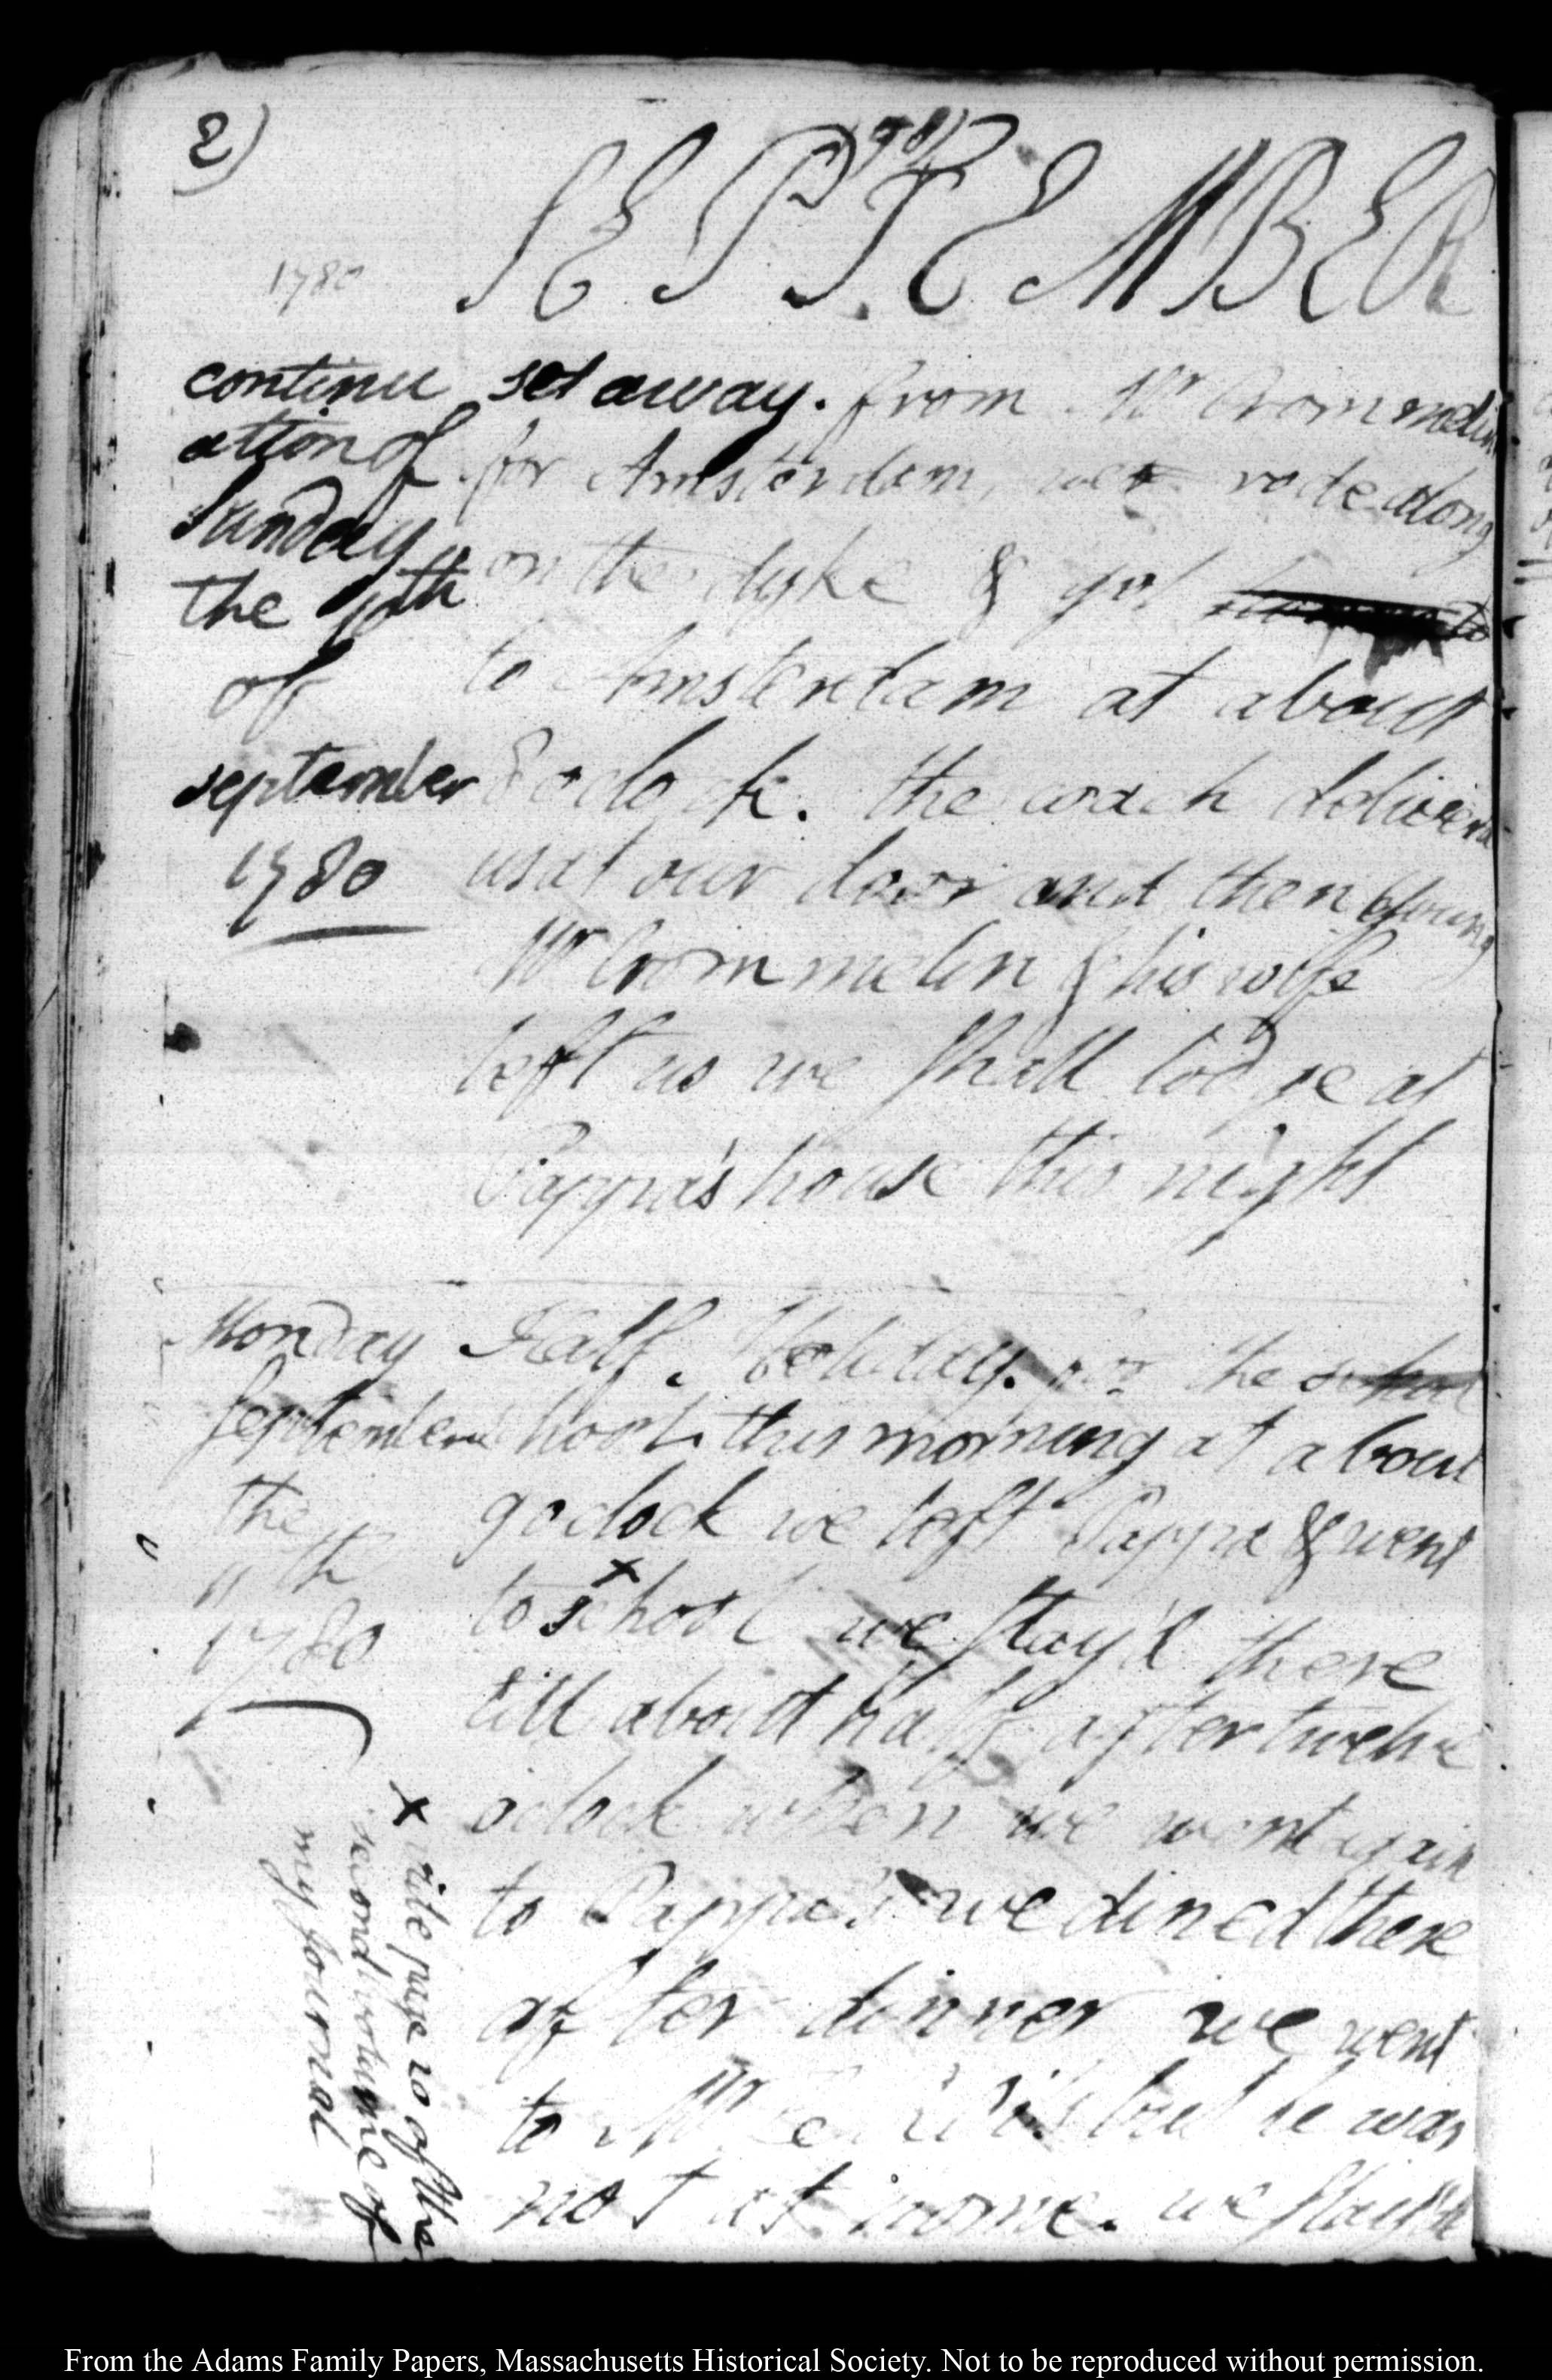 2)
1780
SEPTEMBER
1780
continu
ation of
Sunday
the 10th
of
september
1780
set away. from Mr Crommelin
for Amsterdam, we rode along
on the dyke & got
to Amsterdam at about
8 oclock. the coach deliverd
us at our door and then young
Mr Crommelin & his wife
left us we shall lodge at
Pappa's house this night
Monday
September
the
11th
1780
Half. Holiday. the school
school. this morning at about
9 oclock we left Pappa & went
to school we stay'd there
till about half after twelve
oclock when we went again
to Pappa's we dined there
after dinner we went
to Mr but he was
not at home. we stay'd
x vide page 20 of the
second volume of
my journal
From the Adams Family Papers, Massachusetts Historical Society. Not to be reproduced without permission.